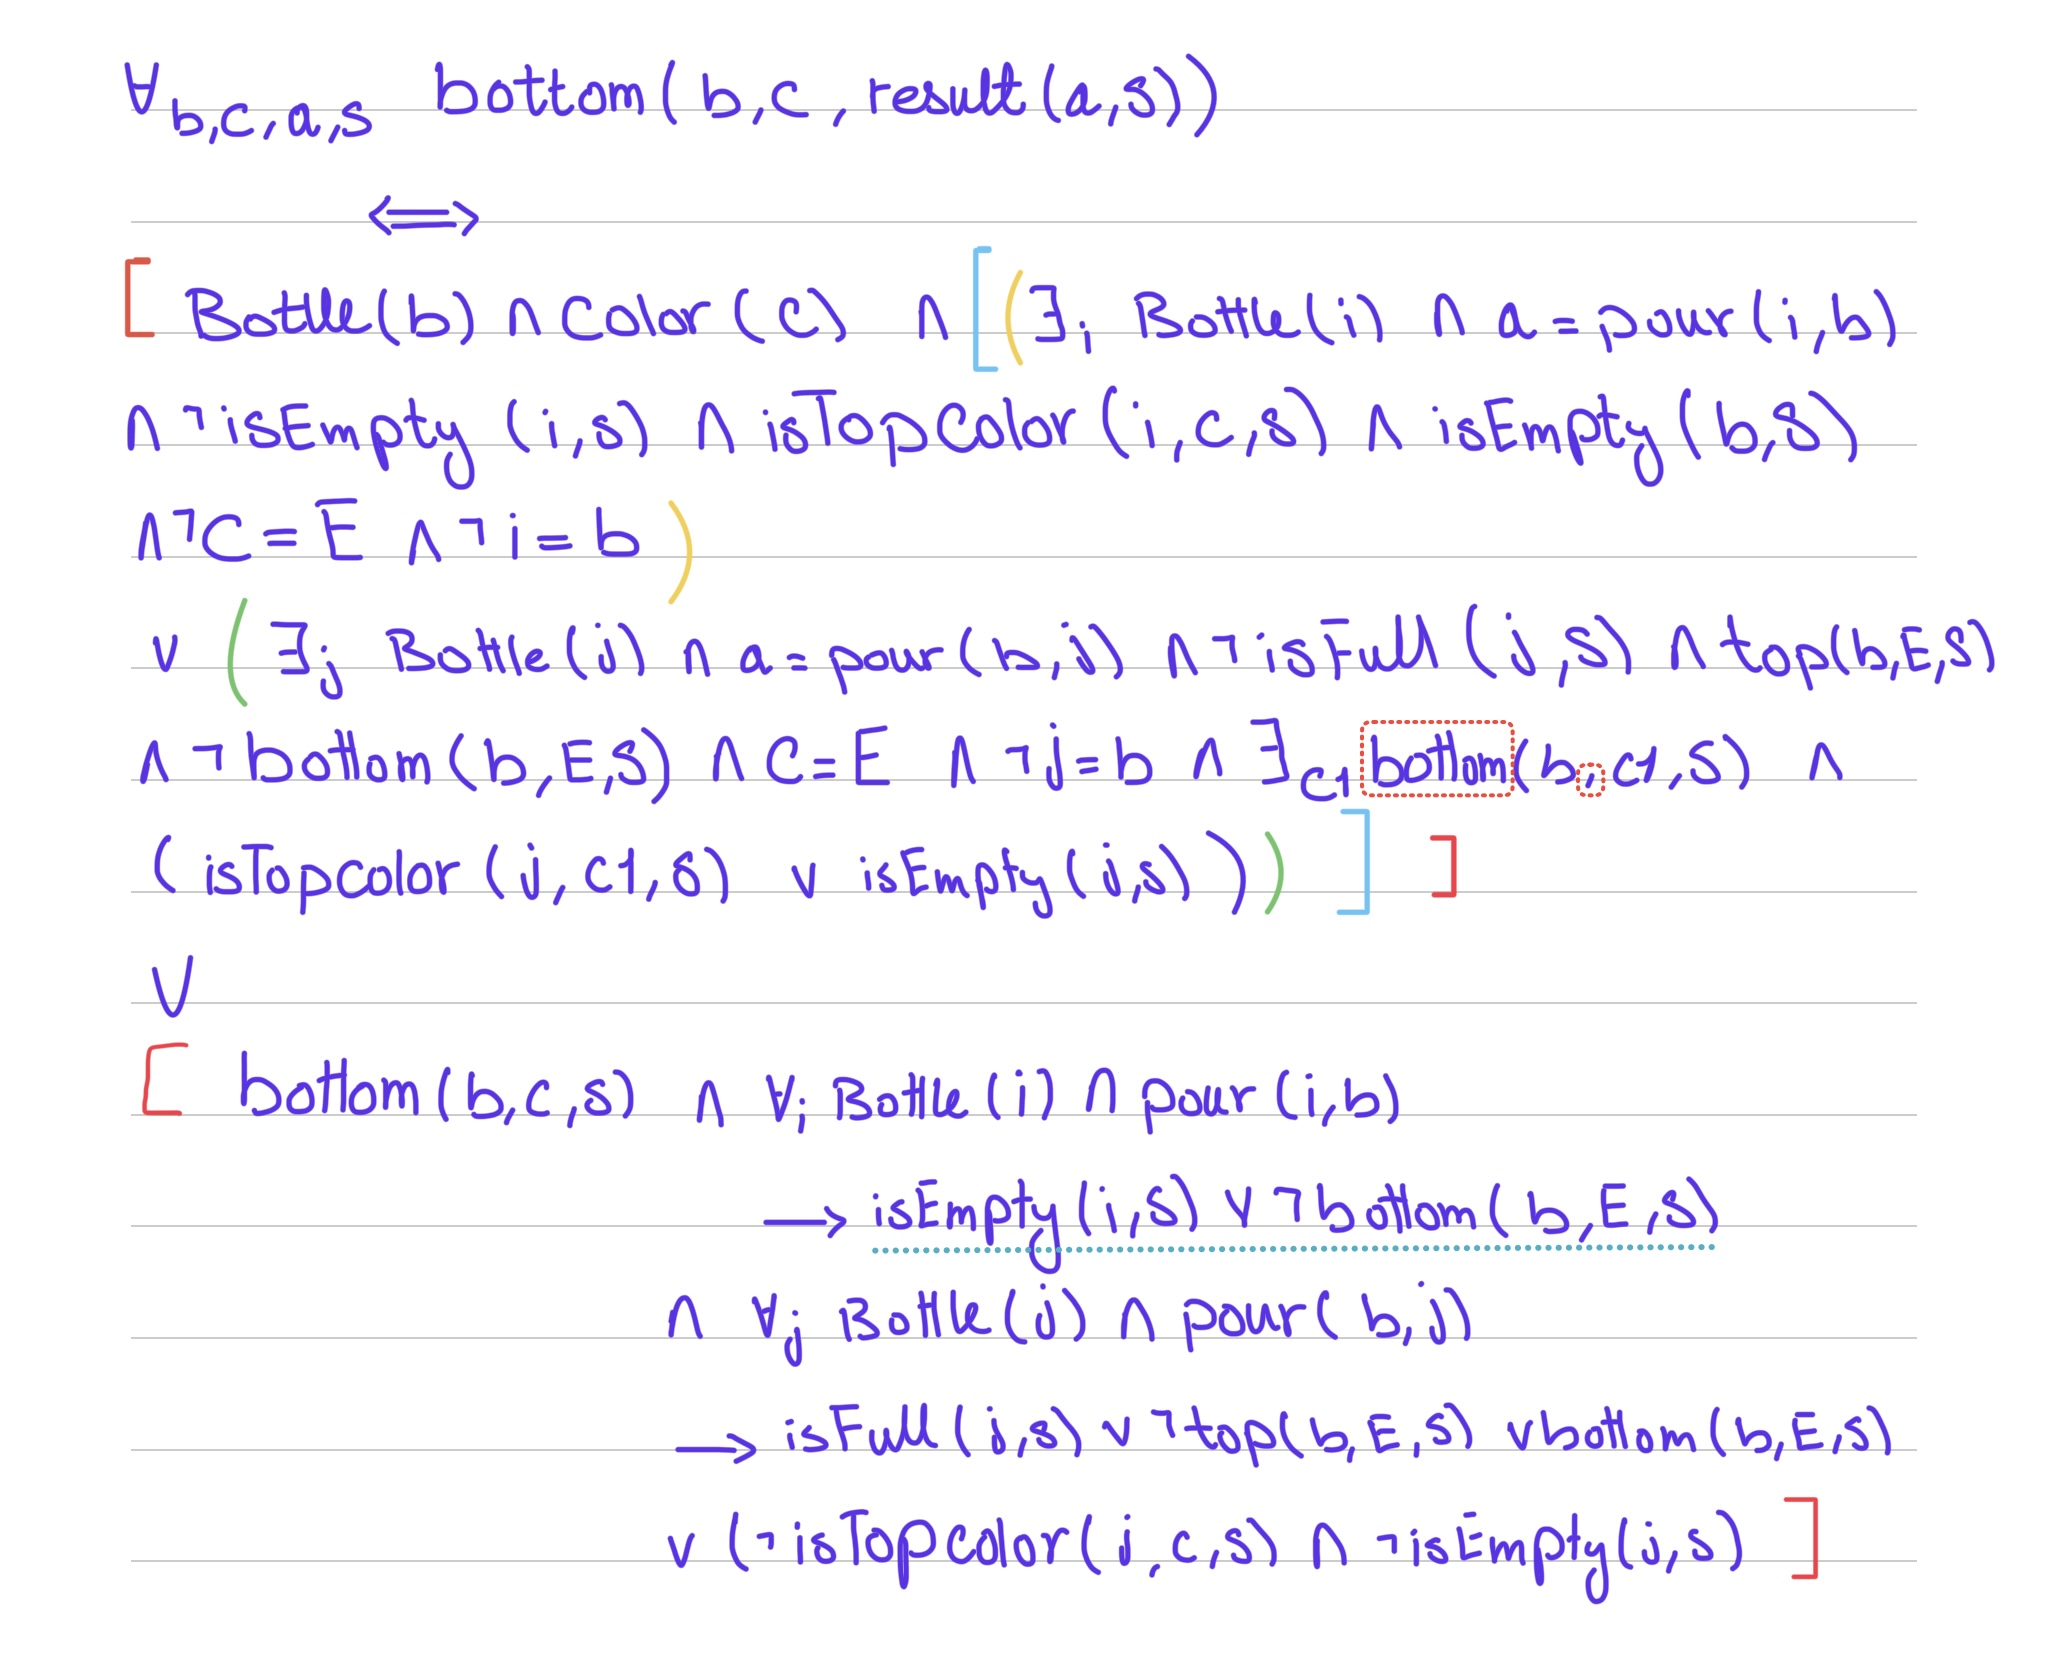 ∀b,c,a,s bottom(b,c,result(a,s))
⟺
[ Bottle(b) ∧ Color(c) ∧ [ ( ∃i Bottle(i) ∧ a = pour(i,b)
∧ ¬isEmpty(i,s) ∧ isTopColor(i,c,s) ∧ isEmpty(b,s)
∧ ¬C = E ∧ ¬i = b )
∨ ( ∃j Bottle(j) ∧ a = pour(b,j) ∧ ¬isFull(j,s) ∧ top(b,E,s)
∧ ¬bottom(b,E,s) ∧ C = E ∧ ¬j = b ∧ ∃c1 bottom(b,c1,s) ∧
(isTopcolor(j,c1,s) ∨ isEmpty(j,s)) ) ] ]
∨
[ bottom(b,c,s) ∧ ∀i Bottle(i) ∧ pour(i,b)
→ isEmpty(i,s) ∨ ¬bottom(b,E,s)
∧ ∀j Bottle(j) ∧ pour(b,j)
→ isFull(j,s) ∨ ¬top(b,E,s) ∨ bottom(b,E,s)
∨ (¬isTopcolor(j,c,s) ∧ ¬isEmpty(j,s) ]